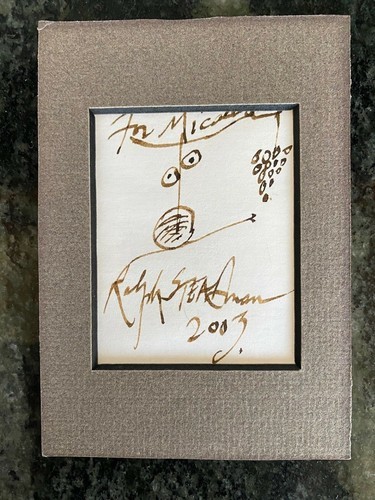 For
Ralph STEADman
2003.